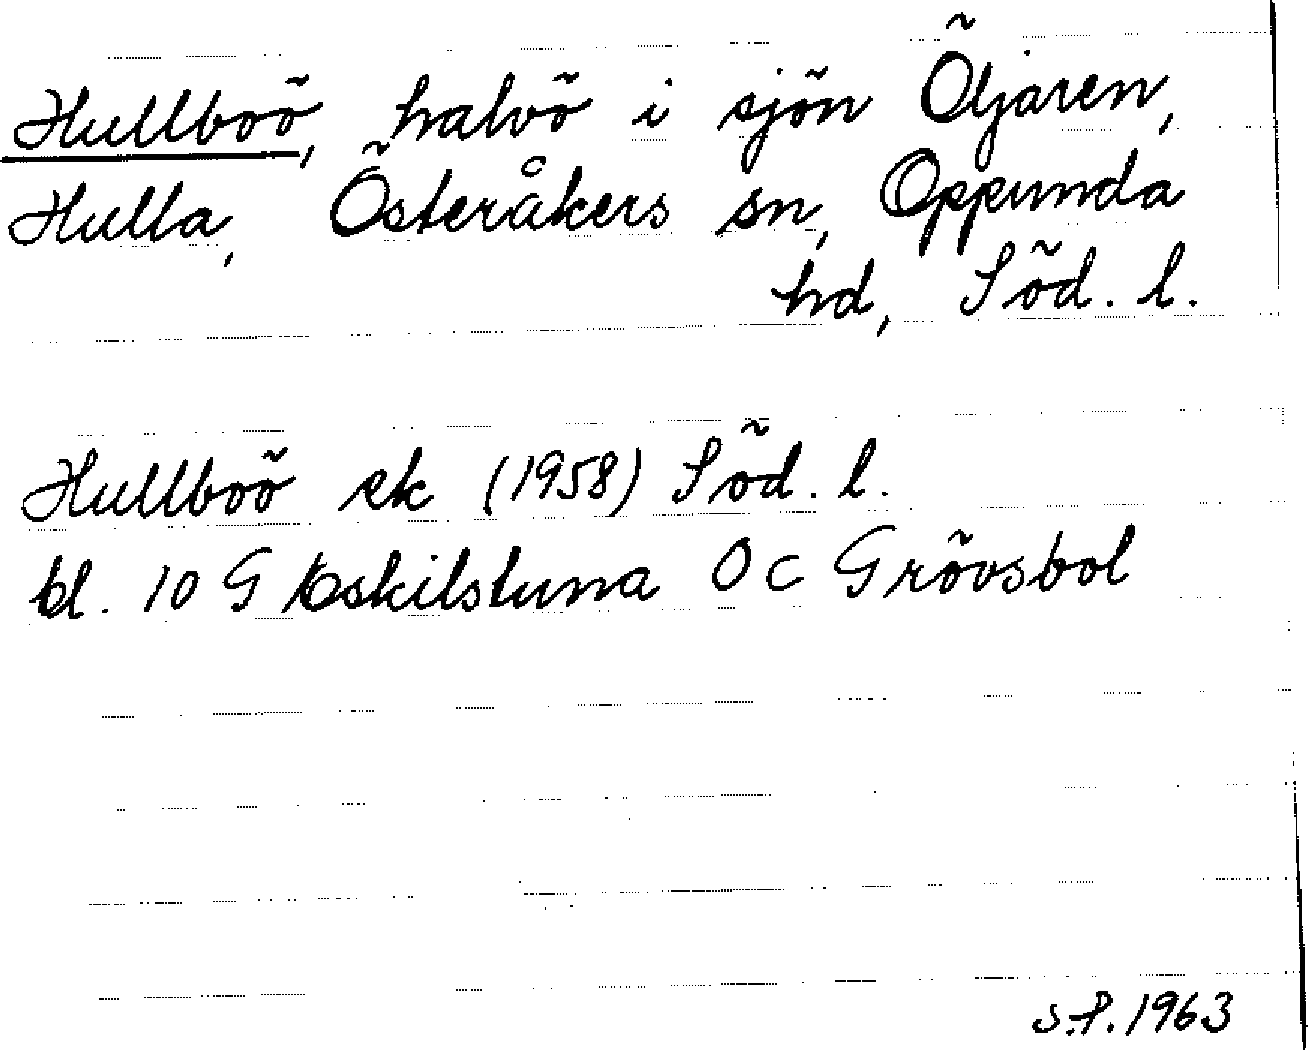 Hullboö, halvö i sjön Öljaren,
Hulla, Österåkers sn, Oppunda
hd, Söd. l.
Hullboö ek (1958) Söd. l.
bl. 10 G Eskilstuna 0 c Grövsbol
S.P. 1963